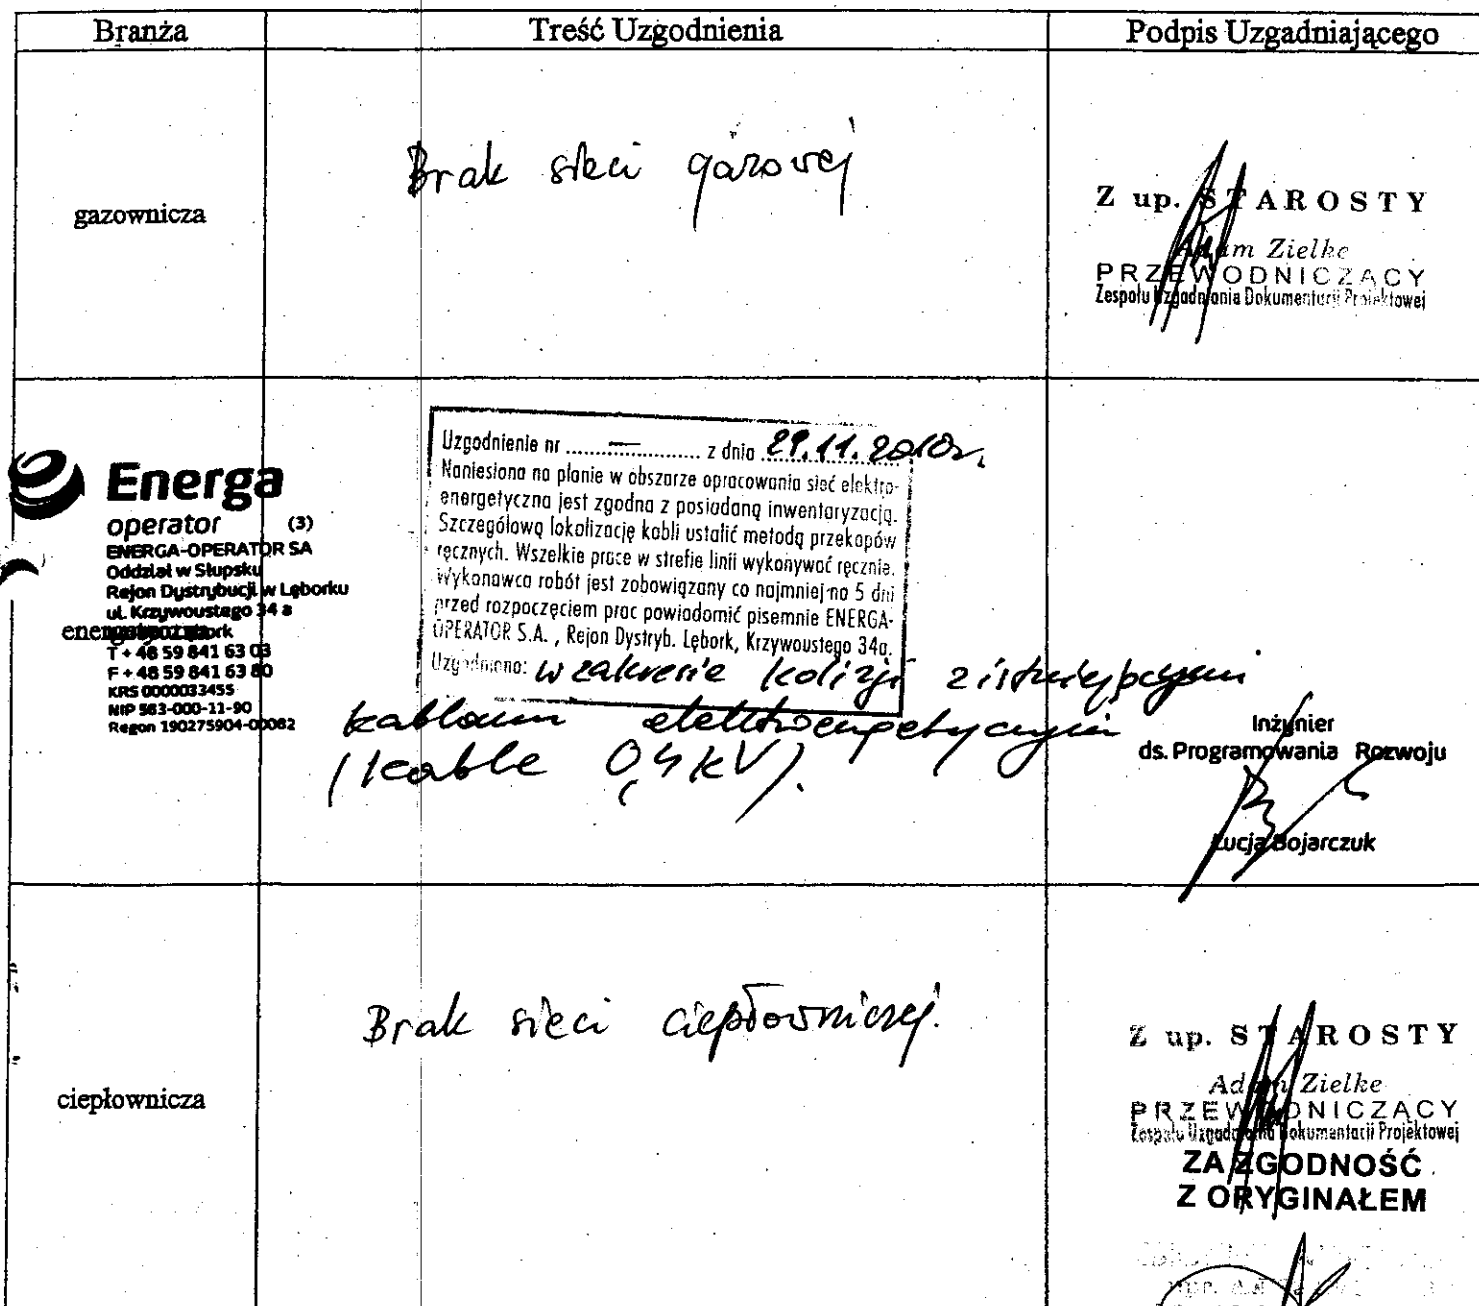 Branża
Treść Uzgodnienia
Podpis Uzgadniającego
gazownicza
Brak sieci gazowej
Z up. STAROSTY
Adam Zielke
PRZEWODNICZĄCY
Zespołu Uzgadniania Dokumentacji Projektowej
Energa
operator (3)
ENERGA-OPERATOR SA
Oddział w Słupsku
Rejon Dystrybucji w Lęborku
ul. Krzywoustego 34 a
T + 48 59 841 63 03
F + 48 59 841 63 80
KRS 0000033455
NIP 583-000-11-90
Regon 190275904-00062
Uzgodnienie nr ..... — ..... z dnia 29.11.2010r.
Naniesiona na planie w obszarze opracowania sieć elektro-
energetyczna jest zgodna z posiadaną inwentaryzacją.
Szczegółową lokalizację kabli ustalić metodą przekopów
ręcznych. Wszelkie prace w strefie linii wykonywać ręcznie.
Wykonawca robót jest zobowiązany co najmniej na 5 dni
przed rozpoczęciem prac powiadomić pisemnie ENERGA-
OPERATOR S.A. , Rejon Dystryb. Lębork, Krzywoustego 34a.
Uzgodniono: w zakresie kolizji z istniejącymi
kablami elektroenergetycznymi
(kable 0,4 kV).
Inżynier
ds. Programowania Rozwoju
Łucja Bojarczuk
ciepłownicza
Brak sieci ciepłowniczej.
Z up. STAROSTY
Adam Zielke
PRZEWODNICZĄCY
Zespołu Uzgadniania Dokumentacji Projektowej
ZA ZGODNOŚĆ
Z ORYGINAŁEM